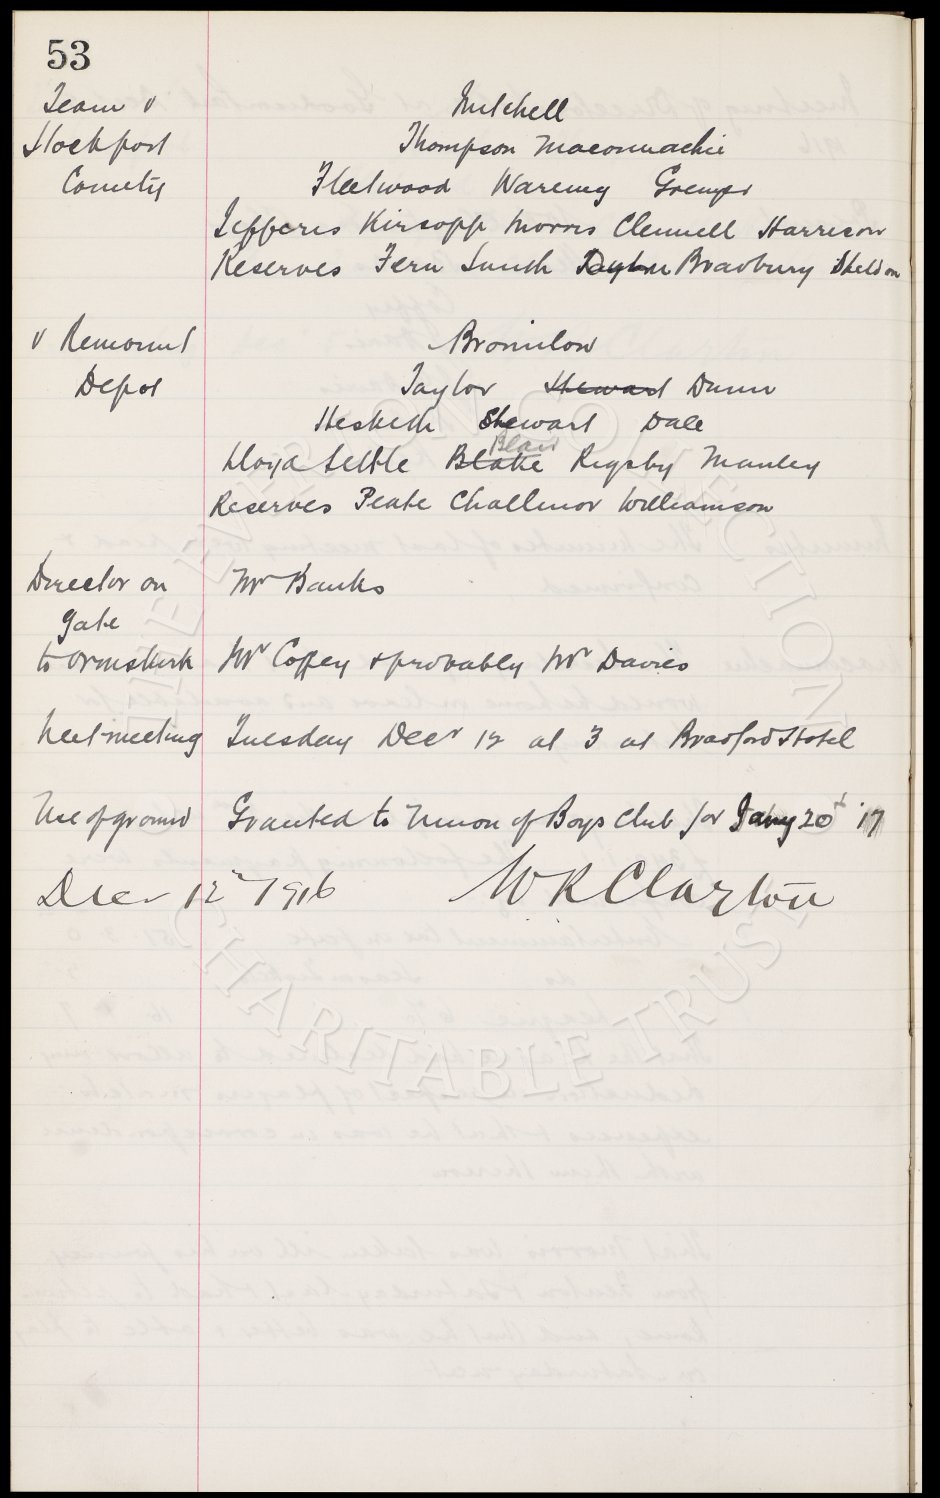 53
Team v Mitchell
Stockport Thompson Maconnachie
County Fleetwood Wareing Grenyer
Jefferis Kirsopp Morris Clennell Harrison
Reserves Fern Smith Taylor Bradbury Sheldon
v Remount Bromilow
Depot Taylor Stewart Dunn
Hesketh Stewart Dale
Blair
Lloyd Settle Blake Rigsby Manley
Reserves Peate Challinor Williamson
Director on Mr Banks
gate
to Ormskirk Mr Coffey & probably Mr Davies
Next meeting Tuesday Decr 12 at 3 at Bradford Hotel
Use of ground Granted to Union of Boys Club for Jany 20th '17
Decr 12th 1916 W R Clayton
THE EVERTON COLLECTION
CHARITABLE TRUST